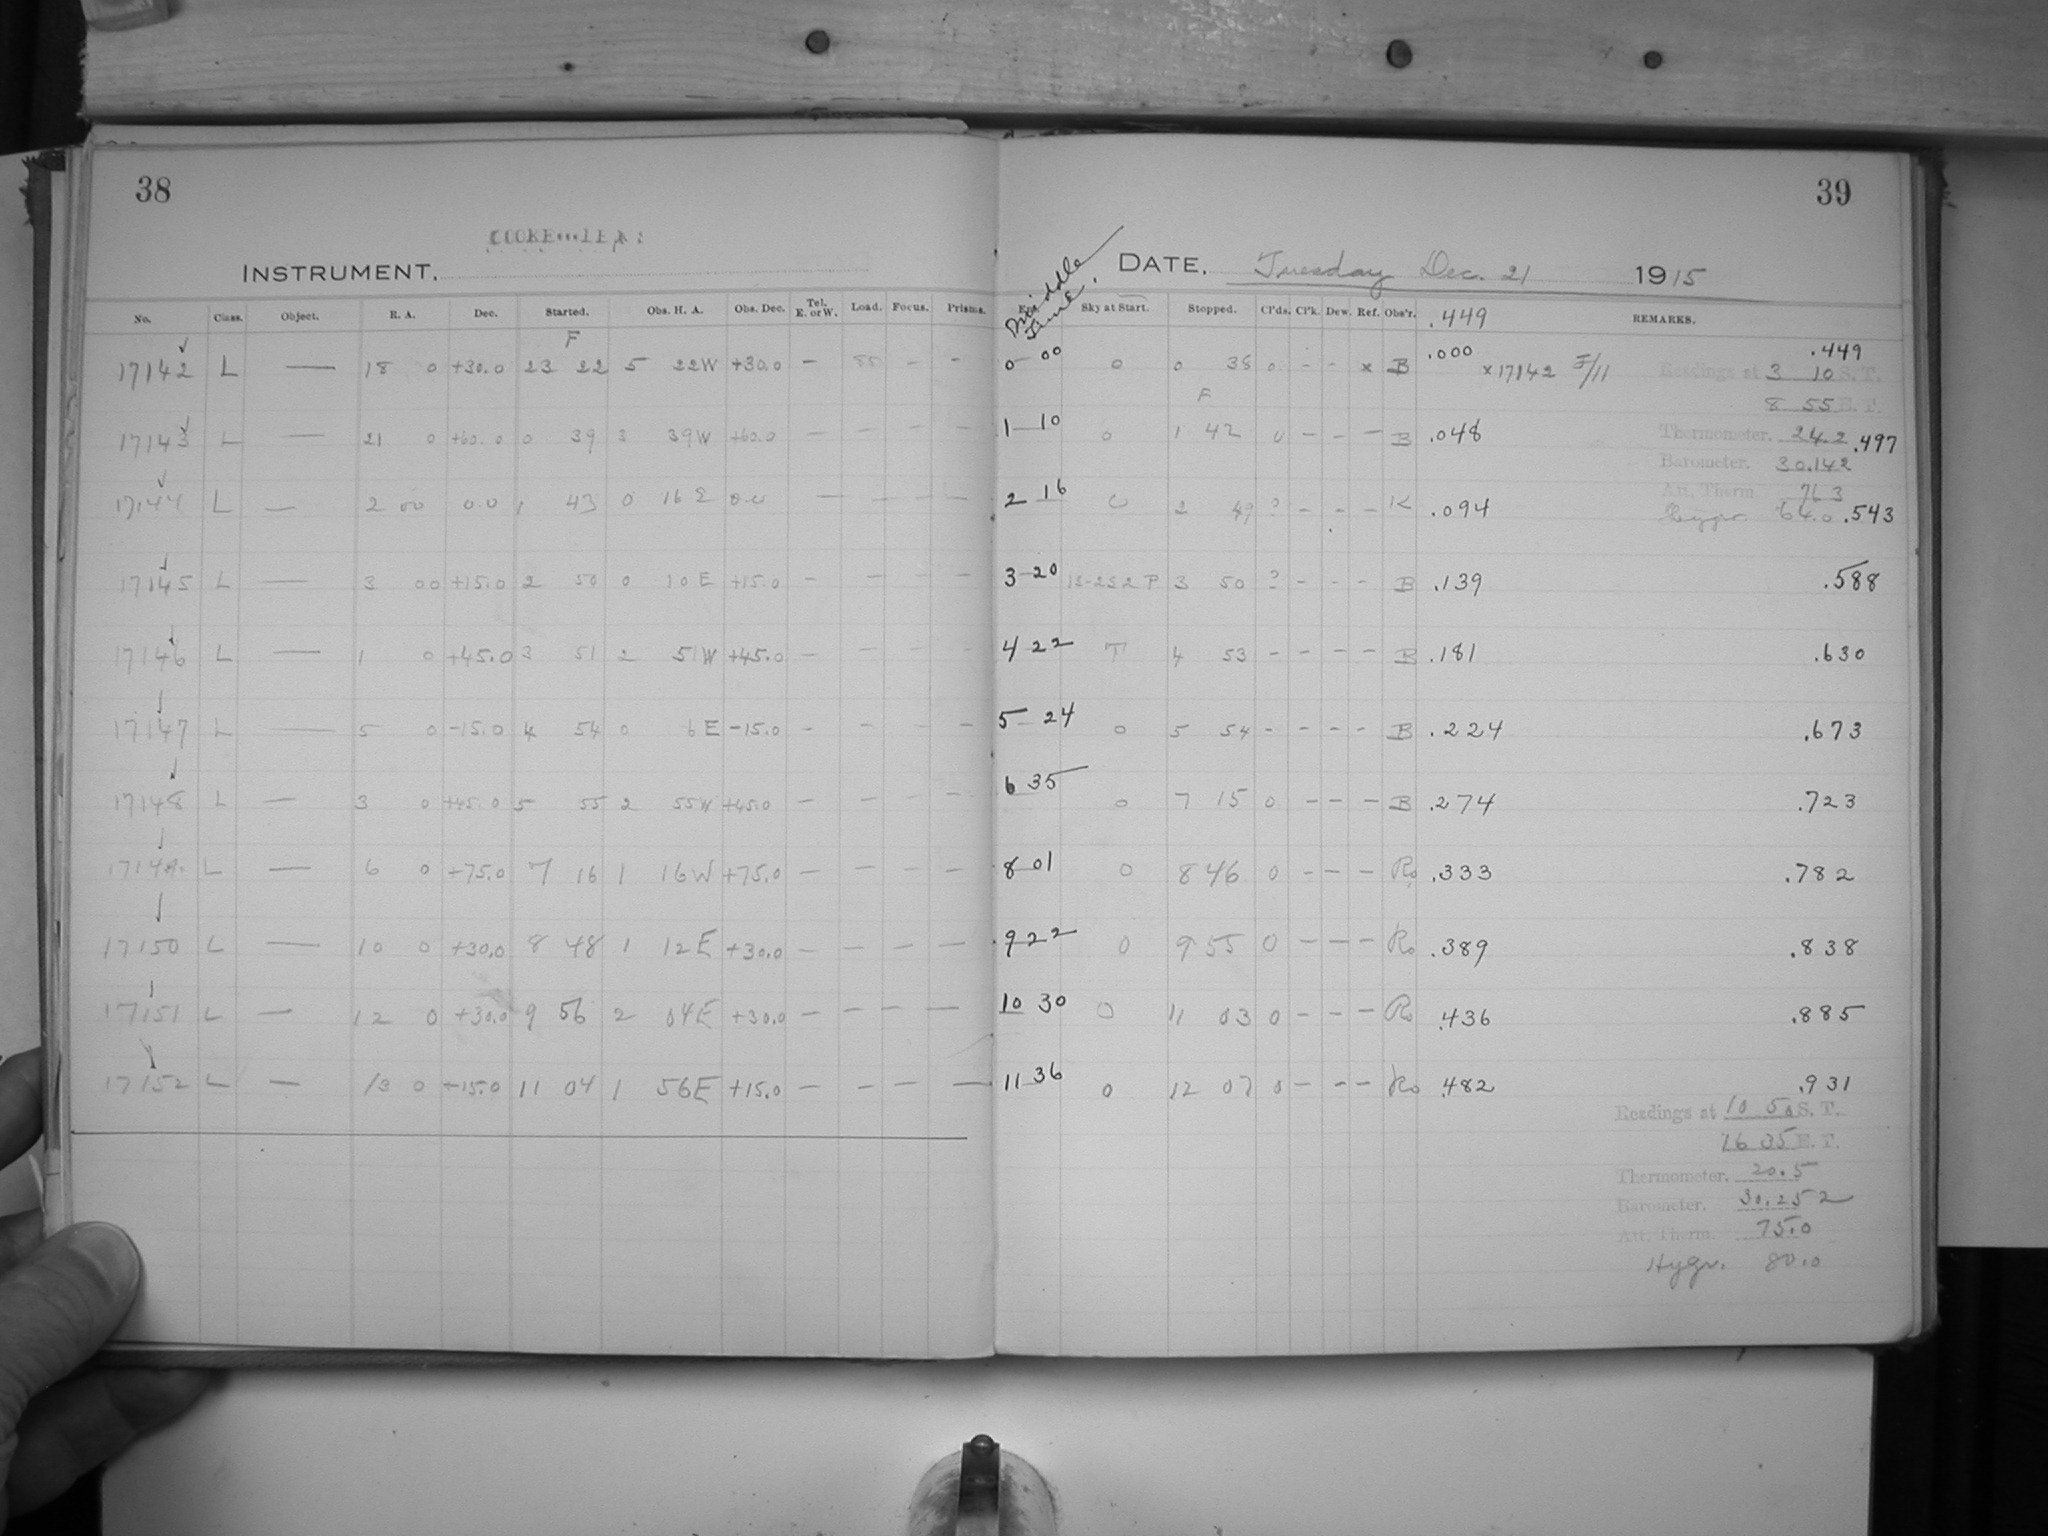 38
COOKE LENS
INSTRUMENT.
No. Class. Object. R. A. Dec. Started. Obs. H. A. Obs. Dec. Tel. E. or W. Load. Focus. Prisms.
F
17142 L — 18 0 +30.0 23 22 5 22W +30.0 — 88 - -
17143 L — 21 0 +60.0 0 39 3 39W +60.0 — — — —
17144 L — 2 00 0.0 1 43 0 16 E 0.0 — — — —
17145 L — 3 00 +15.0 2 50 0 10 E +15.0 — — — —
17146 L — 1 0 +45.0 3 51 2 51W +45.0 — — — —
17147 L — 5 0 -15.0 4 54 0 6 E -15.0 - - - -
17148 L — 3 0 +45.0 5 55 2 55W +45.0 — — — —
17149 L — 6 0 +75.0 7 16 1 16W +75.0 — — — —
17150 L — 10 0 +30.0 8 48 1 12E +30.0 — — — —
17151 L — 12 0 +30.0 9 56 2 04E +30.0 — — — —
17152 L — 13 0 +15.0 11 04 1 56E +15.0 — — — —
39
Middle Time.
DATE. Tuesday Dec. 21 1915
Sky at Start. Stopped. Cl'ds. Cl'k. Dew. Ref. Obs'r. .449 REMARKS.
0 00 0 0 38 0 - - x B .000 x17142 F/11 .449
Readings at 3 10 S. T.
8 55 E. T.
F
1 10 0 1 42 0 - - - B .048 Thermometer. 24.2 .497
Barometer. 30.142
Att. Therm. 76.3
2 16 0 2 49 ? - - - K .094 Hygr. 64.0 .543
3 20 1S-2S2P 3 50 ? - - - B .139 .588
4 22 T 4 53 - - - - B .181 .630
5 24 0 5 54 - - - - B .224 .673
6 35 0 7 15 0 - - - B .274 .723
8 01 0 8 46 0 - - - Ro .333 .782
9 22 0 9 55 0 - - - Ro .389 .838
10 30 0 11 03 0 - - - Ro .436 .885
11 36 0 12 07 0 - - - Ro .482 .931
Readings at 10 50 S. T.
16 35 E. T.
Thermometer. 20.5
Barometer. 30.252
Att. Therm. 75.0
Hygr. 80.0